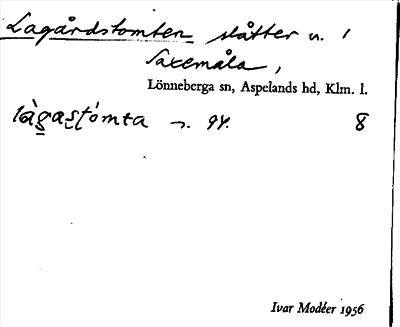 Lagårdstomten slåtter u. /
Saxemåla,
Lönneberga sn, Aspelands hd, Klm. l.
làgastómta ⁊. 94. 8
Ivar Modéer 1956